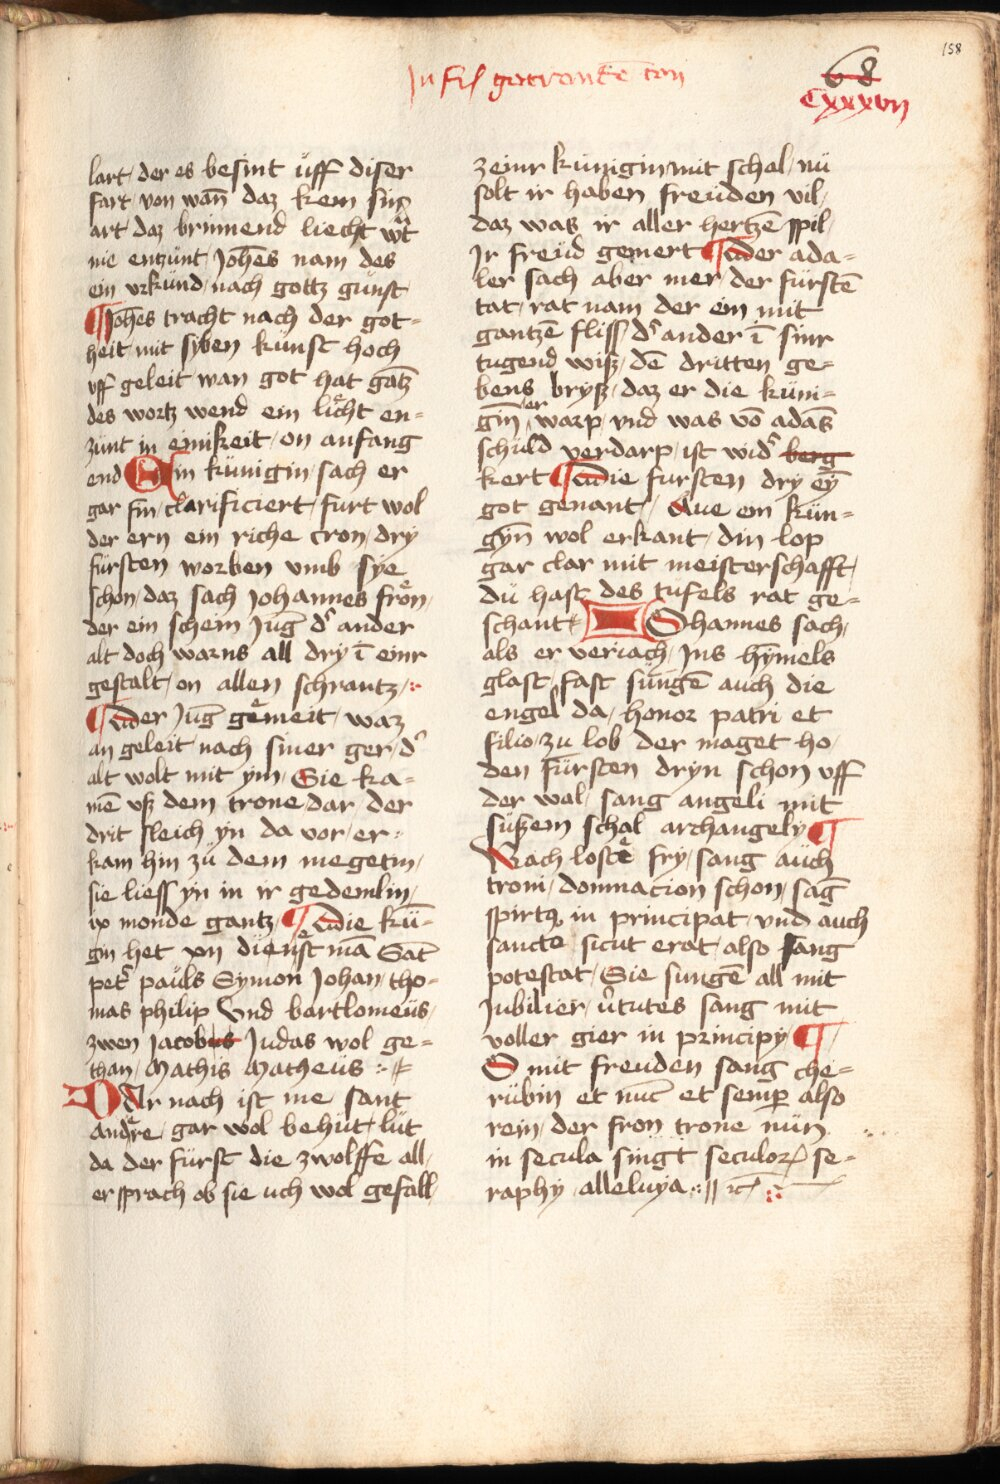 158
In sim getronckē ton
68
Cxxxvii
lart / der es besint uff diser
fart / von wañ daz kem sin
art / daz brinnend liecht wt
nie enzunt / Johēs nam des
ein vrkund / nach gottz gunst
¶ Johēs tracht nach der got=
heit / mit syben kunst hoch
vff geleit / wan got hat gātz
des wortz wend ein liecht en=
zunt in einikeit / on anfang
end Ein kunigin / sach er
gar fin / clarificiert / furt wol
der ern ein riche cron / dry
fursten worben vmb sye
schon / daz sach Johannes fron /
der ein schein Jung dˀ ander
alt doch warns all dry ī einr
gestalt / on allen schrantz /
¶ der Jūg gemeit / waz
an geleit / nach siner ger / dˀ
alt wolt mit ym / Sie ka=
mē vß dem trone / dar der
drit sleich yn da vor / er=
kam hin zu dem megetin /
sie liess yn in ir gedemlin /
ix monde gantz / ¶ die ku=
gin het xii dienst mā Sāt
petˀ pauls Symon Johan / tho=
mas philip Vnd bartlomeus /
zwen Jacobus Judas wol ge=
than / Mathis Matheus
DAr nach ist me sant
andre / gar wol behut / lut
da der furst die zwolffe all /
er sprach ob sie uch wol gefall /
zeinr kunigin / mit schal / nu
solt ir haben freuden vil /
daz was ir aller hertzē spil /
Ir freud gemert ¶ der ada=
ler sach aber mer / der furstē
tat / rat nam der ein mit
gantzē fliss / dˀ ander ī sinr
tugend wiß / dē dritten ge=
bens bryß / daz er die kuni=
gin er warp / vnd was vō adās
schuld verdarp / ist widˀ berg
kert ¶ die fursten dry eȳ
got genant / Aue ein kun=
gyn wol erkant / din lop
gar clar mit meisterschafft /
du hast des tufels rat ge=
schant Johannes sach /
als er veriach / Ins hymels
glast / fast sungē auch die
engel da / honor patri et
filio / zu lob der maget ho /
den fursten dryn schon vff
der wal / sang angeli mit
sußem schal archangely ¶
Nach loste fry / sang auch
troni / domnacion schon / sāg
spirtꝯ in principat / vnd auch
sancte sicut erat / also sang
potestat / Sie sungē all mit
Jubilier / v̓tutes sang mit
voller gier in principy ¶
O mit freuden sang che=
rubin et nūc et semꝑ also
rein / der fron trone nun
in secula singt seculoꝝ se=
raphy / alleluya